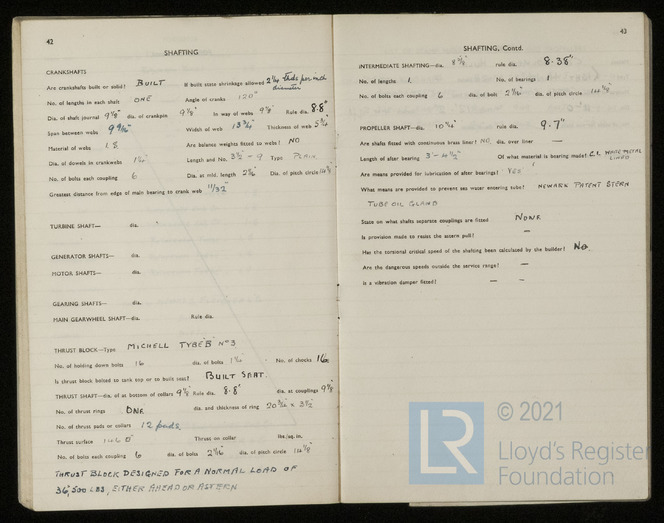 42
SHAFTING
CRANKSHAFTS
Are crankshafts built or solid? BUILT If built state shrinkage allowed per inch diameter
No. of lengths in each shaft ONE Angle of cranks 120°
Dia. of shaft journal 9⅞" dia. of crankpin 9⅞" In way of webs 9⅞" Rule dia. 8.8"
Span between webs 9 9/16" Width of web 13¾" Thickness of web
Material of webs Are balance weights fitted to webs? NO
Dia. of dowels in crankwebs Length and No. 3½ - 9 Type PLAIN
No. of bolts each coupling 6 Dia. at mid. length Dia. of pitch circle
Greatest distance from edge of main bearing to crank web 11/32"
TURBINE SHAFT— dia.
GENERATOR SHAFTS— dia.
MOTOR SHAFTS— dia.
GEARING SHAFTS— dia.
MAIN GEARWHEEL SHAFT—dia. Rule dia.
THRUST BLOCK—Type MICHELL TYPE'B' Nº3
No. of holding down bolts 16 dia. of bolts No. of chocks 16
Is thrust block bolted to tank top or to built seat? BUILT SEAT.
THRUST SHAFT—dia. of at bottom of collars 9⅞" Rule dia. 8.8" dia. at couplings 9⅞"
No. of thrust rings ONE dia. and thickness of ring
No. of thrust pads or collars 12 pads.
Thrust surface Thrust on collar lbs./sq. in.
No. of bolts each coupling 6 dia. of bolts 2 1/16" dia. of pitch circle
THRUST BLOCK DESIGNED FOR A NORMAL LOAD OF
36,500 LBS, EITHER AHEAD OR ASTERN
43
SHAFTING, Contd.
INTERMEDIATE SHAFTING—dia. rule dia. 8.38"
No. of lengths 1. No. of bearings 1
No. of bolts each coupling 6 dia. of bolt 2 1/16" dia. of pitch circle
PROPELLER SHAFT—dia. rule dia. 9.7"
Are shafts fitted with continuous brass liner? NO dia. over liner —
Length of after bearing Of what material is bearing made? C.I. WHITE METAL LINED
Are means provided for lubrication of after bearing? YES
What means are provided to prevent sea water entering tube? NEWARK PATENT STERN
TUBE OIL GLAND
State on what shafts separate couplings are fitted NONE
Is provision made to resist the astern pull? —
Has the torsional critical speed of the shafting been calculated by the builder? No.
Are the dangerous speeds outside the service range? —
Is a vibration damper fitted? — —
LR
© 2021
Lloyd's Register
Foundation